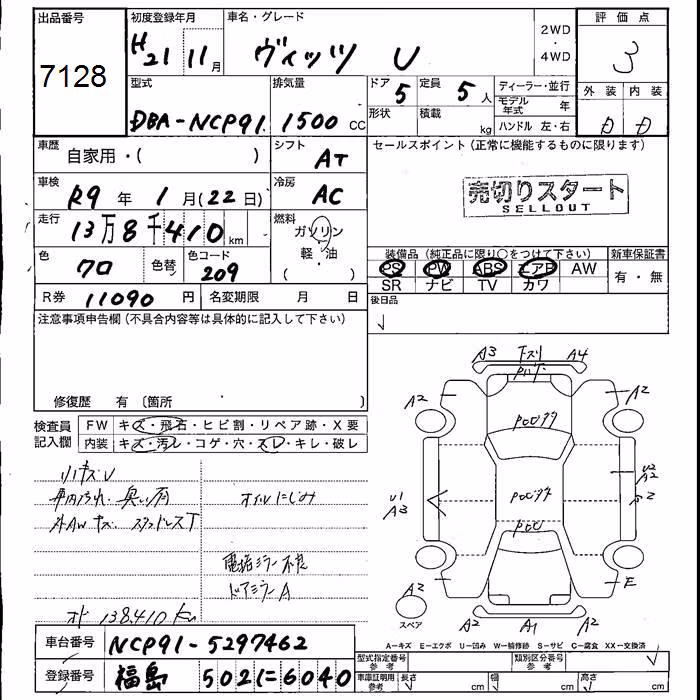 出品番号 初度登録年月 車名・グレード 2WD・4WD 評価点
7128 H21 11月 ヴィッツ U 3
型式 排気量 ドア 定員 ディーラー・並行 外装 内装
DBA-NCP91 1500CC 5 5人 モデル年式 年 D D
形状 積載 kg ハンドル 左・右
車歴 自家用・( ) シフト AT セールスポイント (正常に機能するものに限ります)
車検 R9年 1月(22日) 冷房 AC 売切りスタート
SELLOUT
走行 13万8千410km 燃料 ガソリン・軽・油
装備品 (純正品に限り○をつけて下さい) 新車保証書
色 クロ 色替 色コード 209 PS PW ABS エアB AW 有・無
SR ナビ TV カワ
R券 11090円 名変期限 月 日 後日品
注意事項申告欄 (不具合内容等は具体的に記入して下さい)
修復歴 有 〔箇所 〕
A3 下スリ A4
A2 A2
検査員記入欄 FW キズ・飛石・ヒビ割・リペア跡・X要
内装 キズ・汚レ・コゲ・穴・スレ・キレ・破レ
小キズU
車内汚れ、臭い有 オイルにじみ
外AWキズ スタッドレスT
U1 A3 U2 A2
電格ミラー不良
ドアミラーA
オド 138,410km
A2 E
スペア A2 A1 A2
A－キズ E－エクボ U－凹み W－補修跡 S－サビ C－腐食 XX－交換済
車台番号 NCP91-5297462
型式指定番号 参考 類別区分番号 参考
登録番号 福島 502に6040
車庫証明用 参考 長さ cm 幅 cm 高さ cm